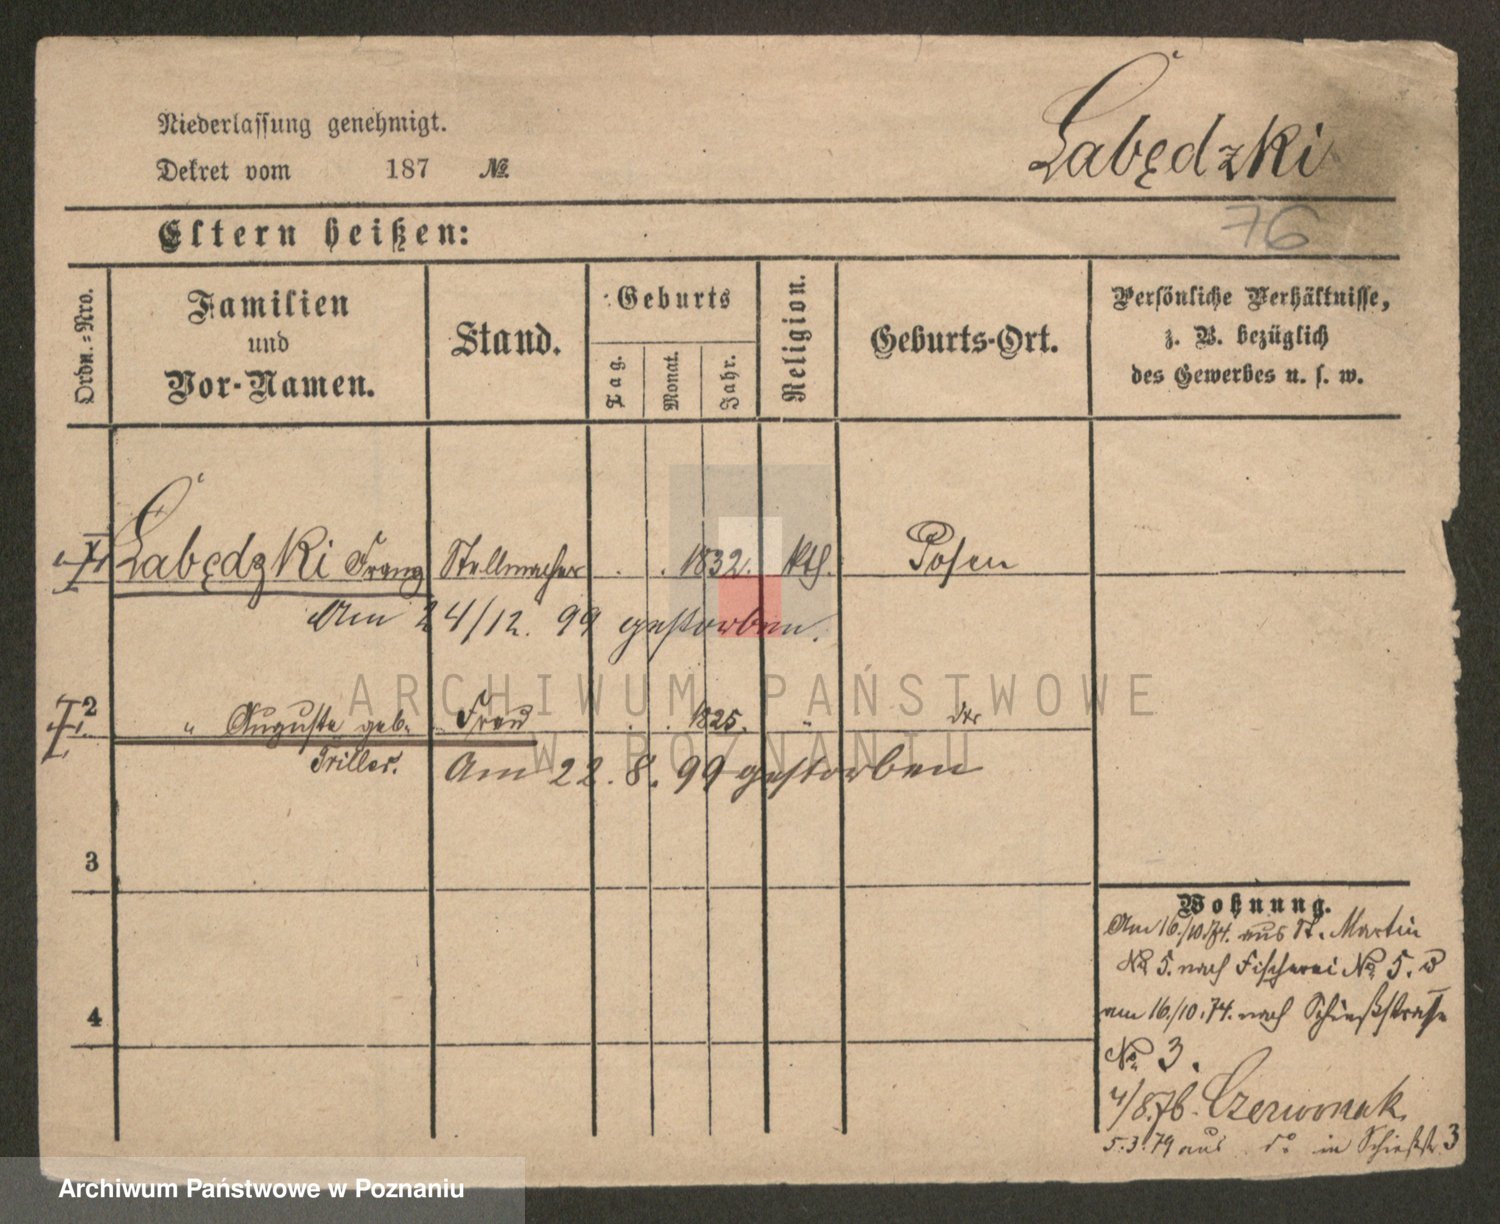 Łabędzki
Niederlassung genehmigt.
Dekret vom 187 №
76
Eltern heißen:
Ordn.-Nro.
Familien
und
Vor-Namen.
Stand.
Geburts
Tag.
Monat.
Jahr.
Religion.
Geburts-Ort.
Persönliche Verhältnisse,
z. B. bezüglich
des Gewerbes u. s. w.
1 Łabędzki Franz Stellmacher . . 1832. kth. Posen
Am 24/12. 99 gestorben.
ARCHIWUM PAŃSTWOWE
W POZNANIU
2 " Auguste geb. Frau . . 1825. "
Triller. Am 22. 8. 99 gestorben
3
4
Wohnung.
Am 16./10.74. aus St. Martin
№ 5. nach Fischerei № 5. 
am 16./10.74. nach Schießstrasse
№ 3.
4/8.76. Czerwonak
5.3.79 aus do in Schießstr. 3
Archiwum Państwowe w Poznaniu